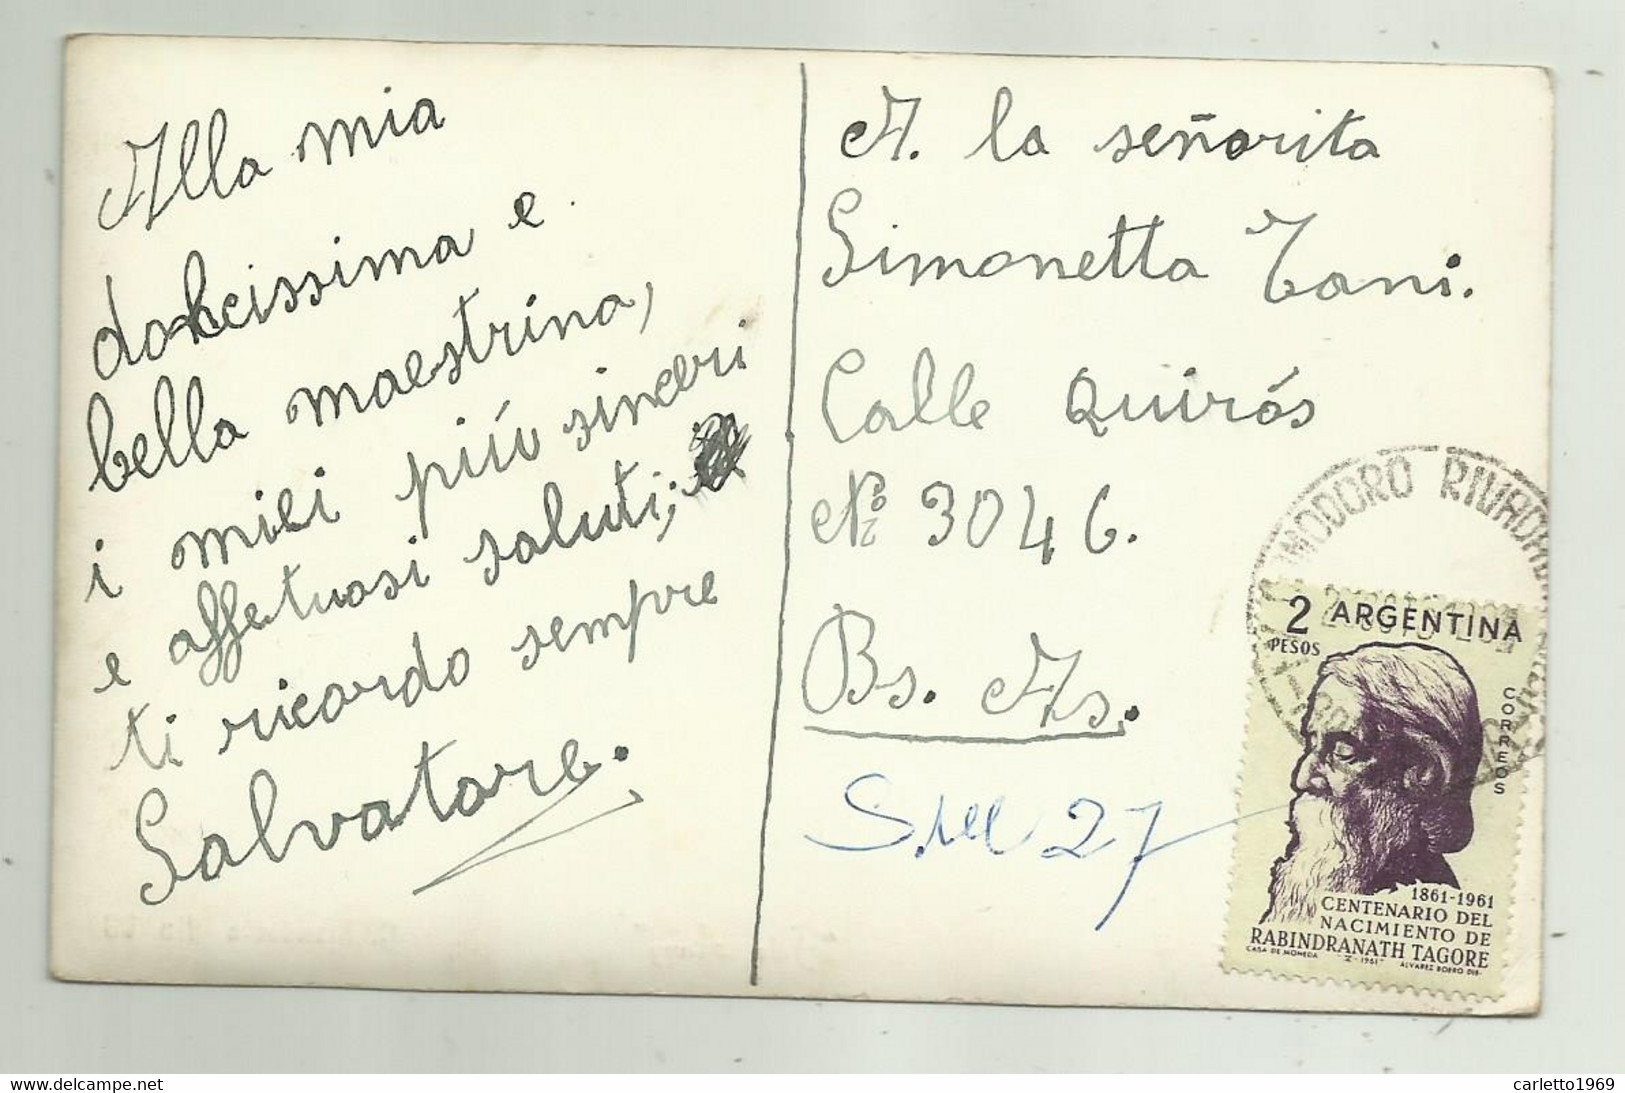 Alla mia
dolcissima e
bella maestrina,
i miei più sinceri
e affetuosi saluti,
ti ricordo sempre
Salvatore.
A. la señorita
Simonetta Tani.
Calle Quirós
Nº 3046.
Bs. As.
27
MODORO RIVADA
2 PESOS
ARGENTINA
CORREOS
1861-1961
CENTENARIO DEL
NACIMIENTO DE
RABINDRANATH TAGORE
CASA DE MONEDA "Z-1961" ALVAREZ BOERO DIB-
delcampe.net
carletto1969